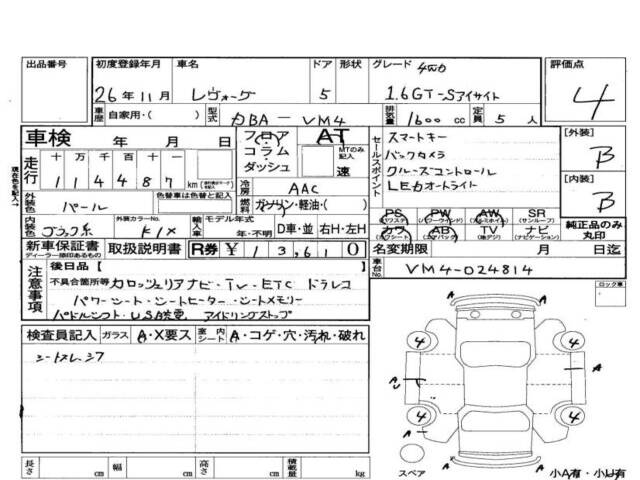 出品番号 初度登録年月 車名 ドア 形状 グレード 4WD 評価点
26年11月 レヴォーグ 5 1.6GT-Sアイサイト 4
車歴 自家用・( ) 型式 DBA-VM4 排気量 1600 cc 定員 5 人
車検 年 月 日 フロア コラム ダッシュ AT MTのみ記入 速
セールスポイント スマートキー
バックカメラ
クルーズコントロール
LEDオートライト
[外装] B
[内装] B
現在色を記入→
走行 十 万 千 百 十
1 1 4 4 8 7 km
冷房 AAC
外装色 パール 色替車は色替と記入 燃料 ガソリン・軽油・( )
内装色 ブラック系 外装カラーNo. K1X 輸入車 モデル年式 年・不明 D車・並 右H・左H
PS (パワステ) PW (パワーウインド) AW (アルミホイル) SR (サンルーフ)
カワ (カワシート) AB (エアバック) TV (地デジ) ナビ (ナビゲーション)
純正品のみ丸印
新車保証書 ディーラー捺印あるもの 取扱説明書 R券 ¥ 1 3,6 1 0 名変期限 月 日迄
車台No. VM4-024814
注意事項 後日品【 】
不具合箇所等 カロッツェリアナビ・TV・ETC ドラレコ
パワーシート・シートヒーター・シートメモリー
パドルシフト・USB充電 アイドリングストップ
ロック車
検査員記入 ガラス A・X要ス 室内シート A・コゲ・穴・汚れ・破れ
シートスレ シワ
A
4 4
A A
U
4 4
A
スペア 小A有・小U有
長さ cm 幅 cm 高さ cm 積載量 kg